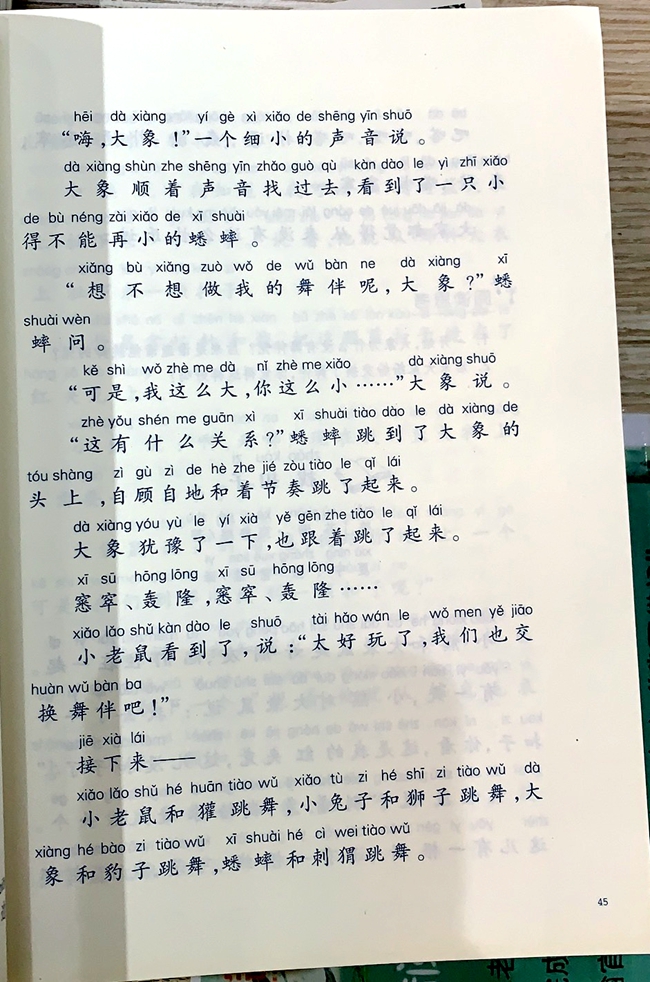 hēi dà xiàng yí gè xì xiǎo de shēng yīn shuō
“嗨,大象!”一个细小的声音说。
dà xiàng shùn zhe shēng yīn zhǎo guò qù kàn dào le yì zhī xiǎo
大象顺着声音找过去,看到了一只小
de bù néng zài xiǎo de xī shuài
得不能再小的蟋蟀。
xiǎng bù xiǎng zuò wǒ de wǔ bàn ne dà xiàng xī
“想不想做我的舞伴呢,大象?”蟋
shuài wèn
蟀问。
kě shì wǒ zhè me dà nǐ zhè me xiǎo dà xiàng shuō
“可是,我这么大,你这么小……”大象说。
zhè yǒu shén me guān xì xī shuài tiào dào le dà xiàng de
“这有什么关系?”蟋蟀跳到了大象的
tóu shàng zì gù zì de hè zhe jié zòu tiào le qǐ lái
头上,自顾自地和着节奏跳了起来。
dà xiàng yóu yù le yí xià yě gēn zhe tiào le qǐ lái
大象犹豫了一下,也跟着跳了起来。
xī sū hōng lōng xī sū hōng lōng
窸窣、轰隆,窸窣、轰隆……
xiǎo lǎo shǔ kàn dào le shuō tài hǎo wán le wǒ men yě jiāo
小老鼠看到了,说:“太好玩了,我们也交
huàn wǔ bàn ba
换舞伴吧!”
jiē xià lái
接下来——
xiǎo lǎo shǔ hé huān tiào wǔ xiǎo tù zi hé shī zi tiào wǔ dà
小老鼠和獾跳舞,小兔子和狮子跳舞,大
xiàng hé bào zi tiào wǔ xī shuài hé cì wei tiào wǔ
象和豹子跳舞,蟋蟀和刺猬跳舞。
45